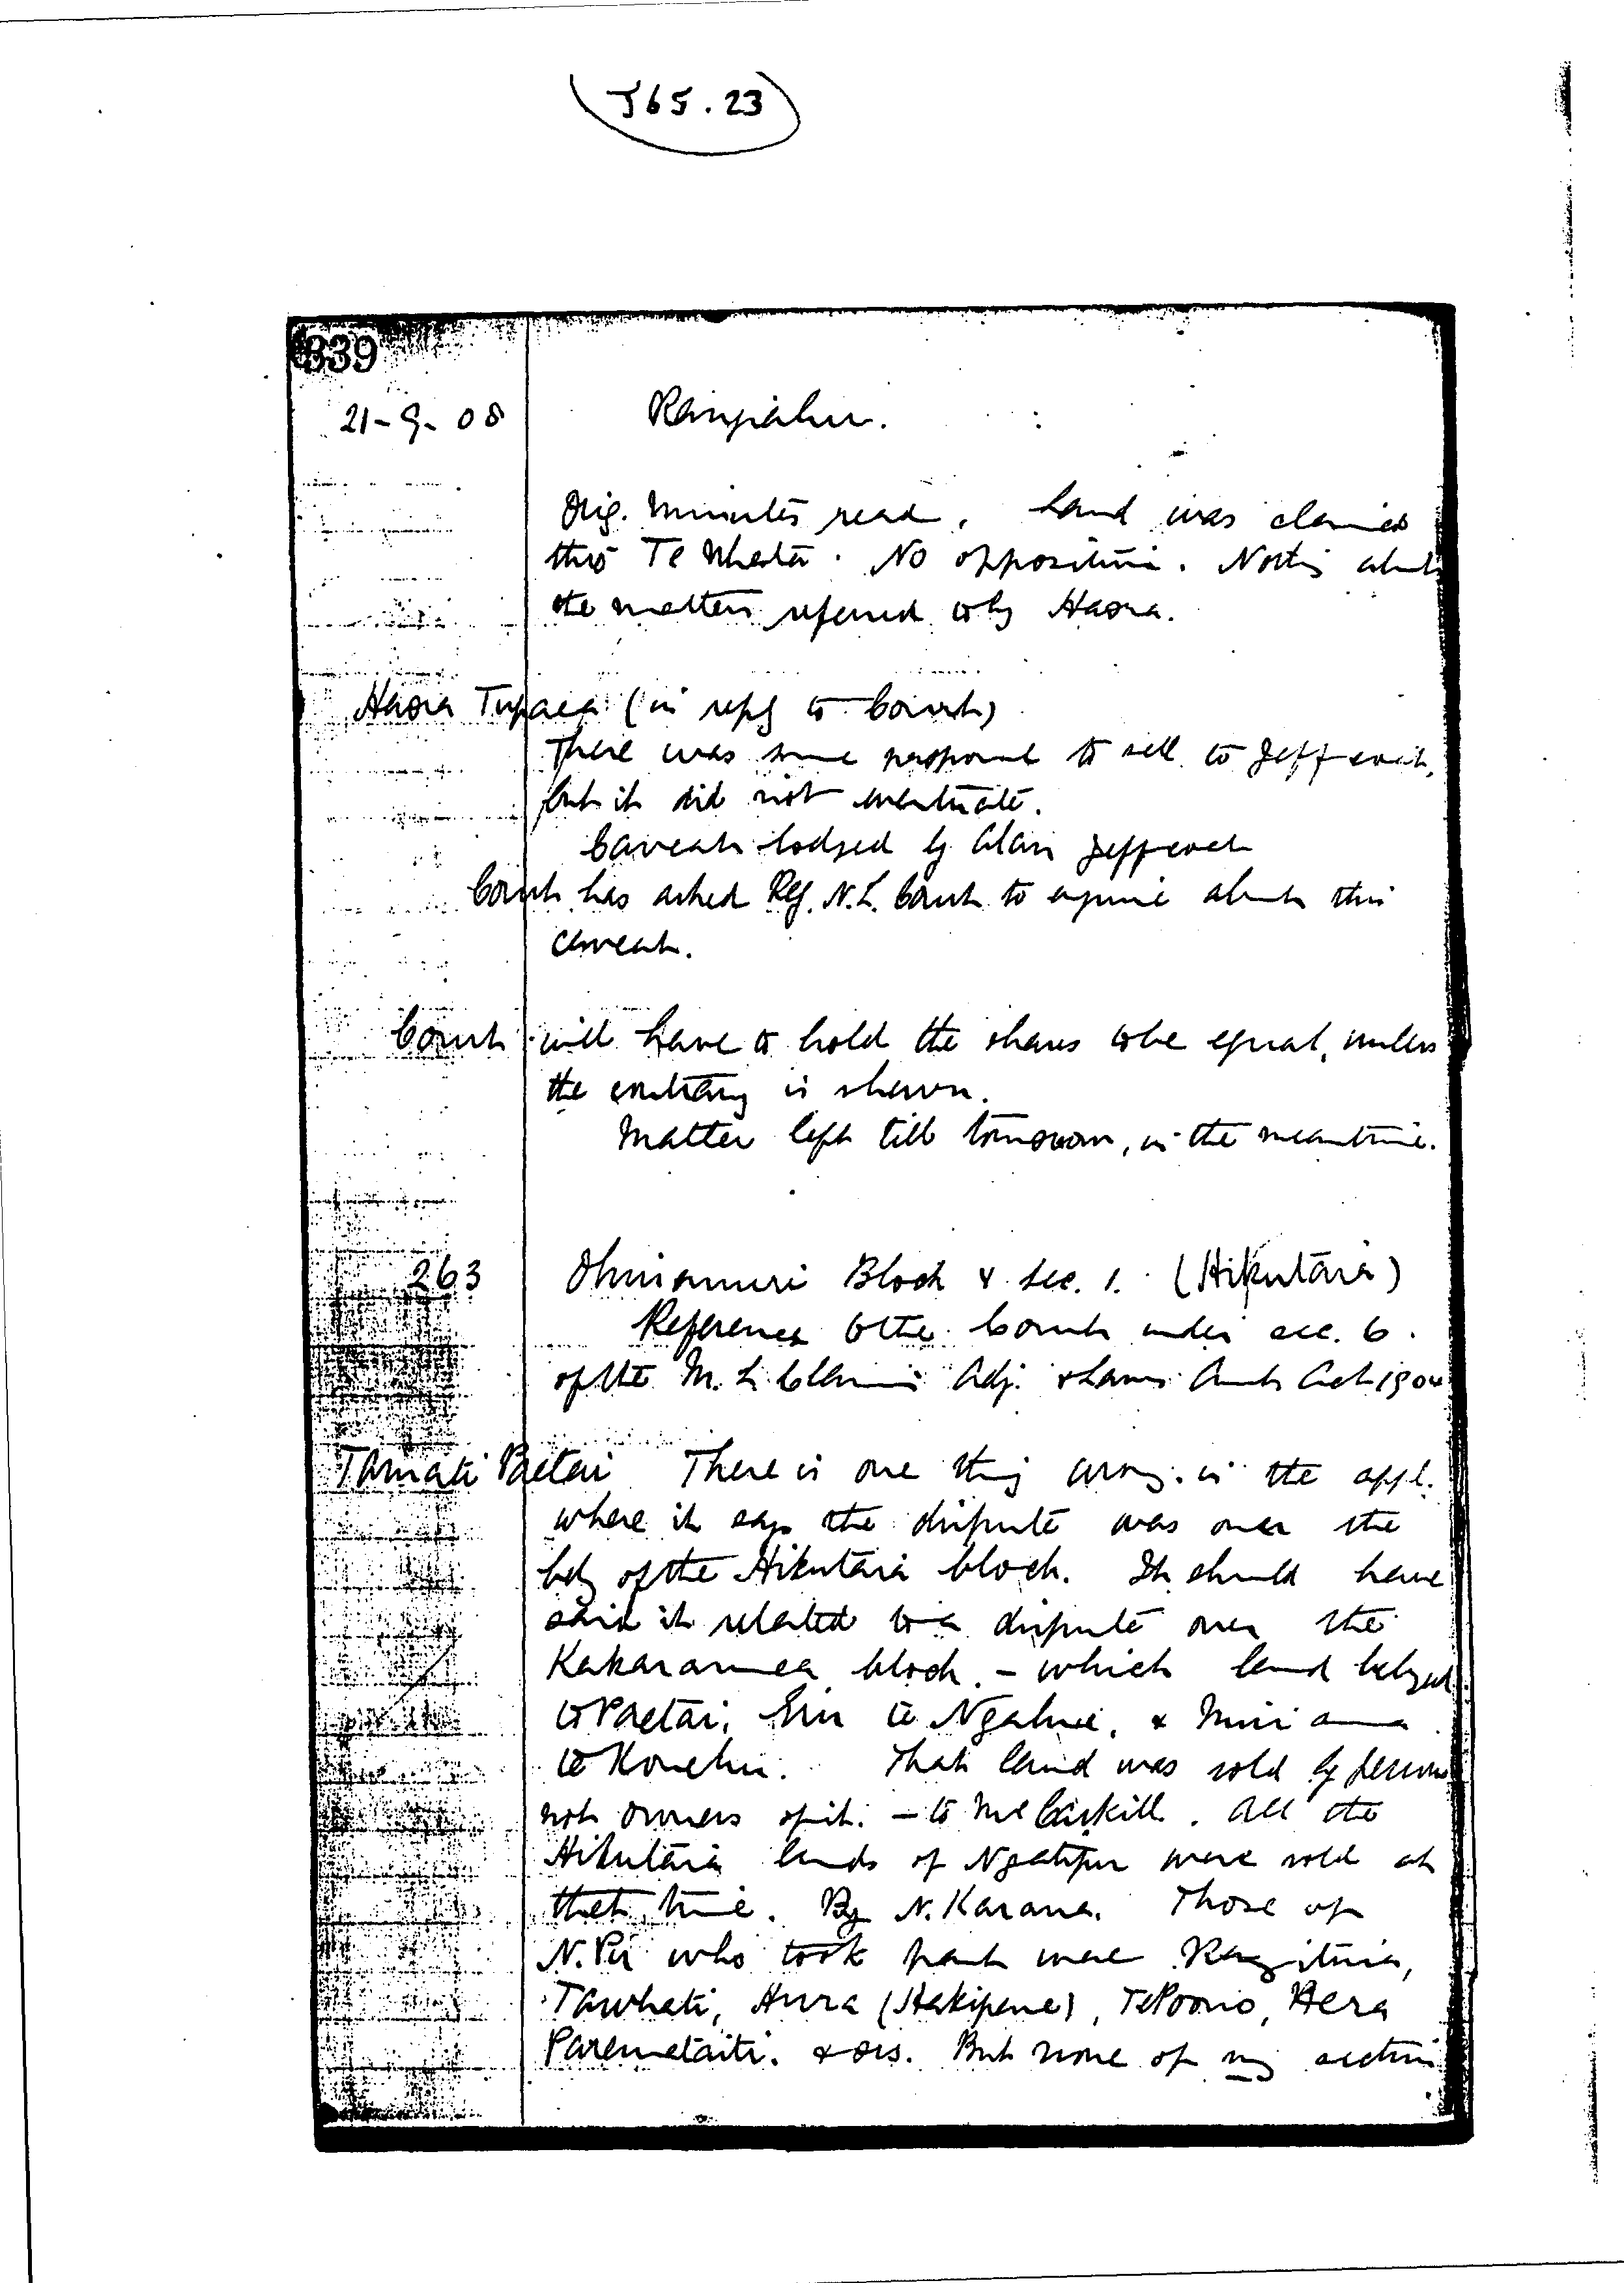 J65.23
339
21-9-08 Rangiahu.
Orig. minutes read. Land was claimed
thro' Te Wheta. No opposition. Nothg abt
the matters referred to by Haora.
Haora Tupaea (in reply to Court)
There was some proposal to sell to Jeffcoat,
but it did not eventuate.
Caveat lodged by Alan Jeffcoat
Court has asked Reg. N.L. Court to enquire about this
caveat.
Court will have to hold the shares to be equal, unless
the contrary is shewn.
Matter left till tomorrow, in the meantime.
263 Ohinemuri Block & Sec. 1. (Hikutaia)
Reference to the Court under sec. 6
of the M. L. Claims Adj. & Laws Amdt Act 1904
Tamati Paetai There is one thing wrong in the appl.
where it says the dispute was over the
bdy of the Hikutaia block. It should have
said it related to a dispute over the
Kakaramea block - which land belgd
to Paetai, Eru te Ngahue, & Miriama
te Konehu. That land was sold by persons
not owners of it. - to McCaskill. All the
Hikutaia lands of Ngatipu were sold at
that time. By N. Karaua. Those of
N. Pu who took part were Rangituia,
Tawhati, Hura (Hakipene), Te Poono, Hera
Paremataiti. & ors. But none of my section